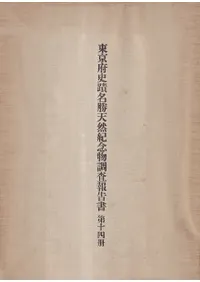 東京府史蹟名勝天然紀念物調査報告書 第十四冊